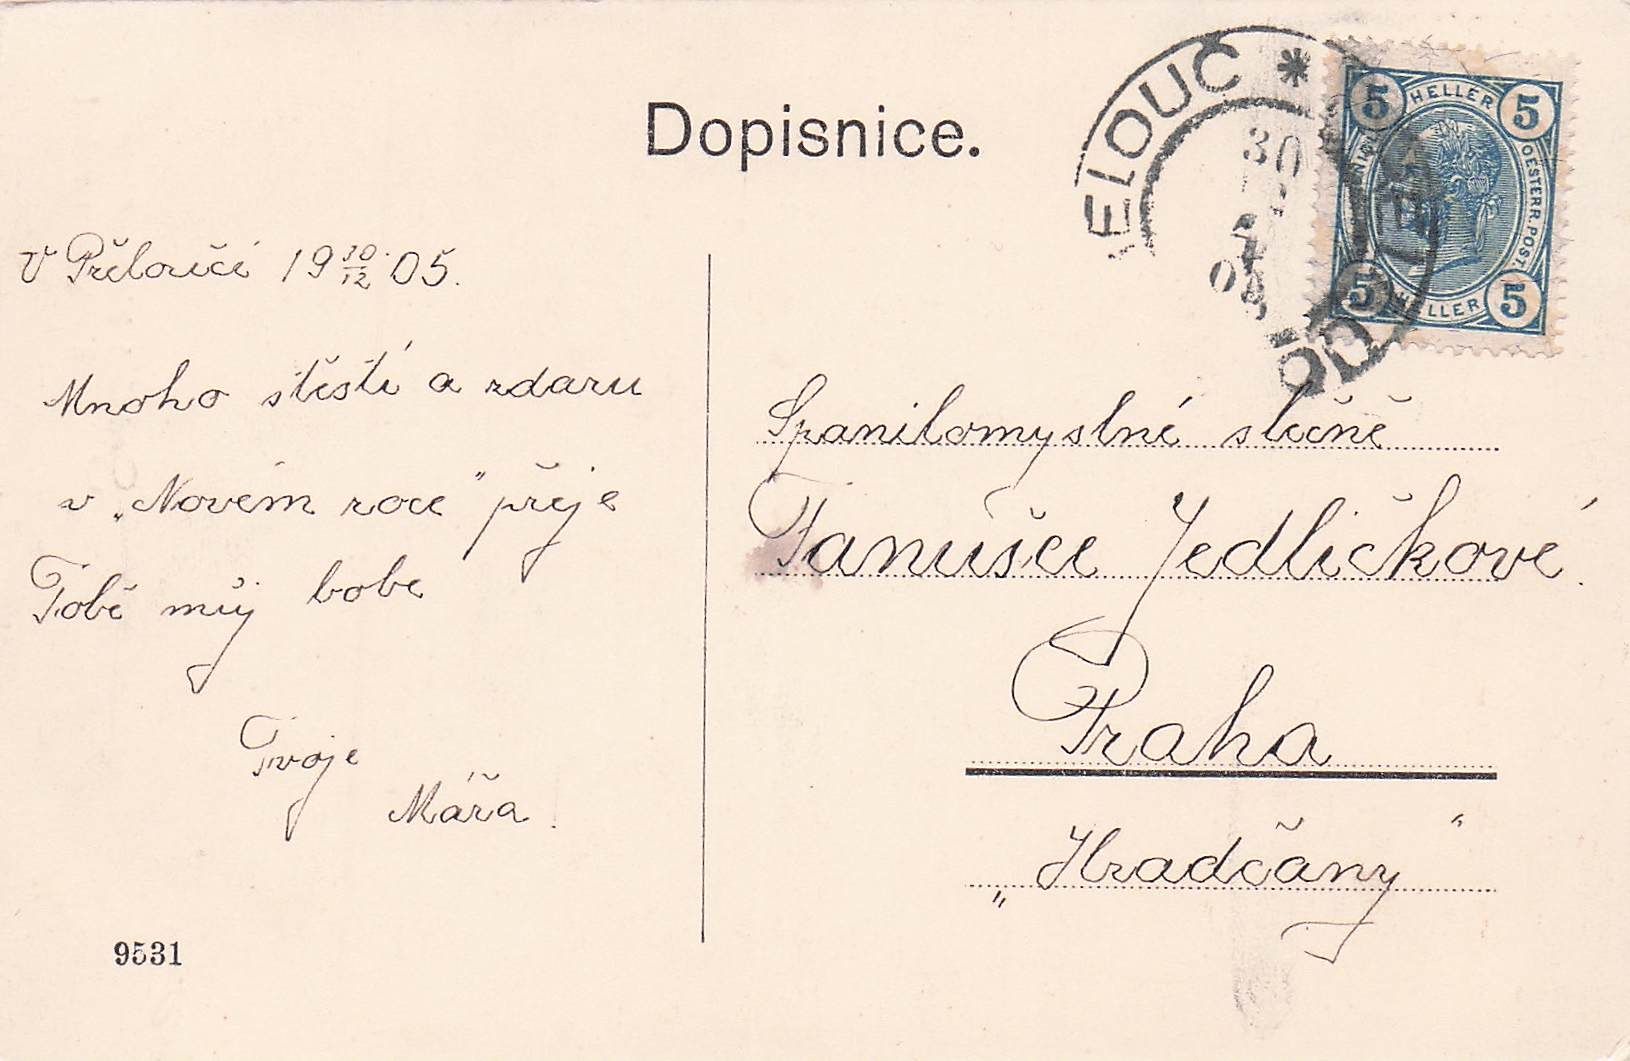 Dopisnice.
ELOUČ *
30
HELLER
5 5
OESTERR. POST.
5 5
HELLER
V Přelouči 19 30/12 05.
Mnoho štěstí a zdaru
v „Novém roce" přeje
Tobě můj bobe
Tvoje
Máňa.
Spanilomyslné slečně
Fanušce Jedličkové.
Praha
„Hradčany"
9531